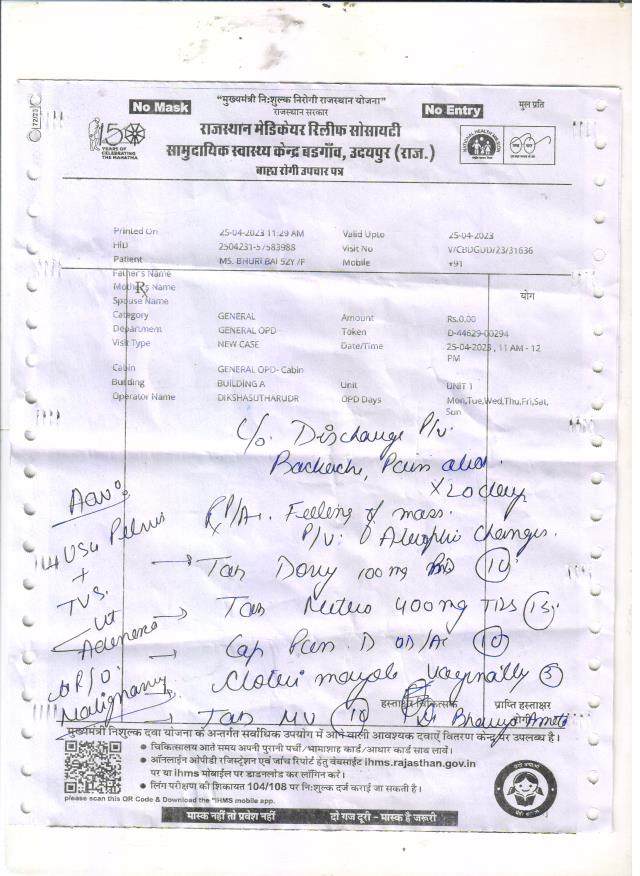 72/23
No Mask
"मुख्यमंत्री निःशुल्क निरोगी राजस्थान योजना"
राजस्थान सरकार
No Entry
मुल प्रति
150
YEARS OF
CELEBRATING
THE MAHATMA
राजस्थान मेडिकेयर रिलीफ सोसायटी
सामुदायिक स्वास्थ्य केन्द्र बडगाँव, उदयपुर (राज.)
बाह्य रोगी उपचार पत्र
Printed On 25-04-2023 11:29 AM Valid Upto 25-04-2023
HID 2504231-57583988 Visit No V/CBDGUD/23/31636
Patient MS. BHURI BAI 52Y /F Mobile +91
Father's Name
Mother's Name
Rx
Spouse Name
योग
Category GENERAL Amount Rs.0.00
Department GENERAL OPD Token D-44629-00294
Visit Type NEW CASE Date/Time 25-04-2023 , 11 AM - 12 PM
Cabin GENERAL OPD- Cabin
Building BUILDING A Unit UNIT 1
Operator Name DIKSHASUTHARUDR OPD Days Mon,Tue,Wed,Thu,Fri,Sat,
Sun
C/o. Discharge P/V.
Backache, Pain abd.
Adv:
Rx P/A. Feeling of mass.
P/V. Atrophic Changes.
USG Pelvis
+
TVS.
→ Tab Doxy 100 mg BD (10)
→ Tab Metro 400 mg TDS (15)
→ Cap Pan D OD/AC (10)
Ut
Adenexa
R/O.
Malignancy
vaginally (3)
→ Tab MV (10)
हस्ताक्षर चिकित्सक
प्राप्ति हस्ताक्षर
मुख्यमंत्री निशुल्क दवा योजना के अन्तर्गत सर्वाधिक उपयोग में आने वाली आवश्यक दवाएँ वितरण केन्द्र पर उपलब्ध है।
• चिकित्सालय आते समय अपनी पुरानी पर्ची / भामाशाह कार्ड / आधार कार्ड साथ लावें।
• ऑनलाईन ओपीडी रजिस्ट्रेशन एवं जांच रिपोर्ट हेतु वेबसाईट ihms.rajasthan.gov.in
पर या ihms मोबाईल पर डाउनलोड कर लॉगिन करें।
• लिंग परीक्षण की शिकायत 104/108 पर निःशुल्क दर्ज कराई जा सकती है।
please scan this QR Code & Download the "IHMS mobile app.
मास्क नहीं तो प्रवेश नहीं दो गज दूरी - मास्क है जरूरी